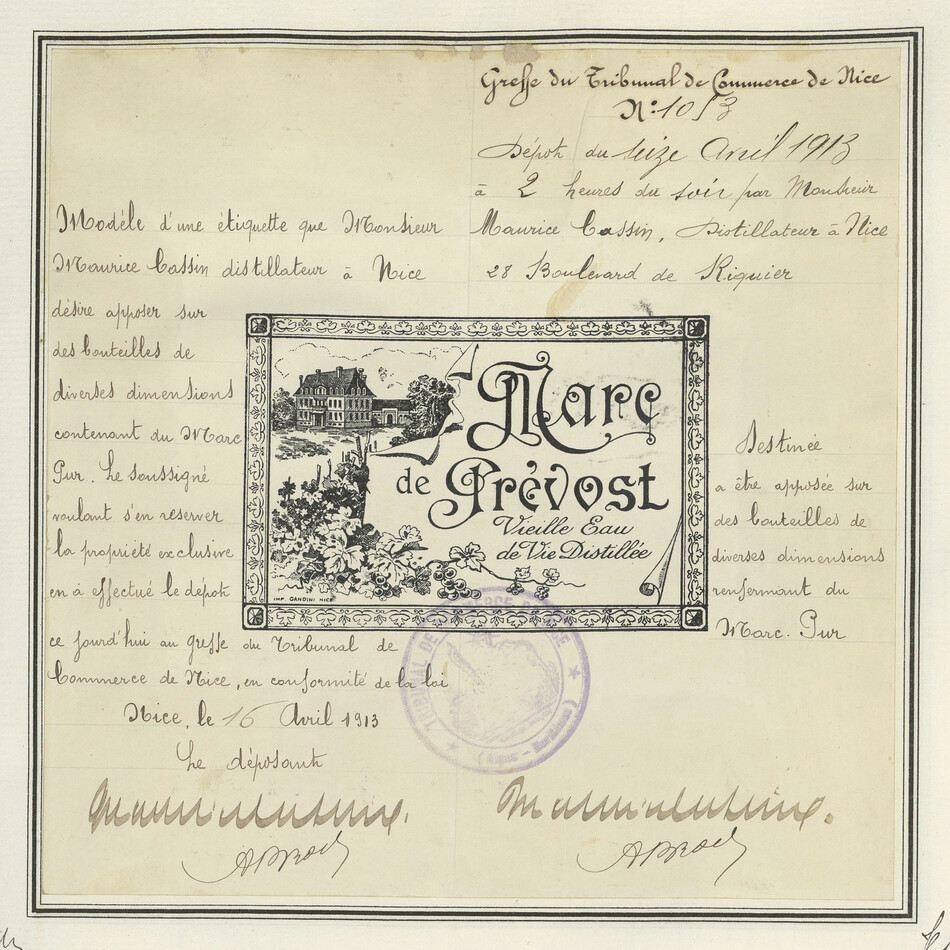 Greffe du Tribunal de Commerce de Nice
N: 1053
Dépôt du seize Avril 1913
à 2 heures du soir par Monsieur
Maurice Cassin, Distillateur à Nice
28 Boulevard de Riquier
Modéle d'une étiquette que Monsieur
Maurice Cassin distillateur à Nice
désire apposer sur
des bouteilles de
diverses dimensions
contenant du Marc
Pur. Le soussigné
voulant s'en reserver
la propriété exclusive
en à effectué le dépôt
ce jourd'hui au greffe du Tribunal de
Commerce de Nice, en conformité de la loi
Nice, le 16 Avril 1913
Le déposant
Marc
de Prévost
Vieille Eau
de Vie Distillée
IMP. GANDINI NICE
Destinée
a être apposée sur
des bouteilles de
diverses dimensions
renfermant du
Marc. Pur
TRIBUNAL DE COMMERCE DE NICE
(Alpes - Maritimes)